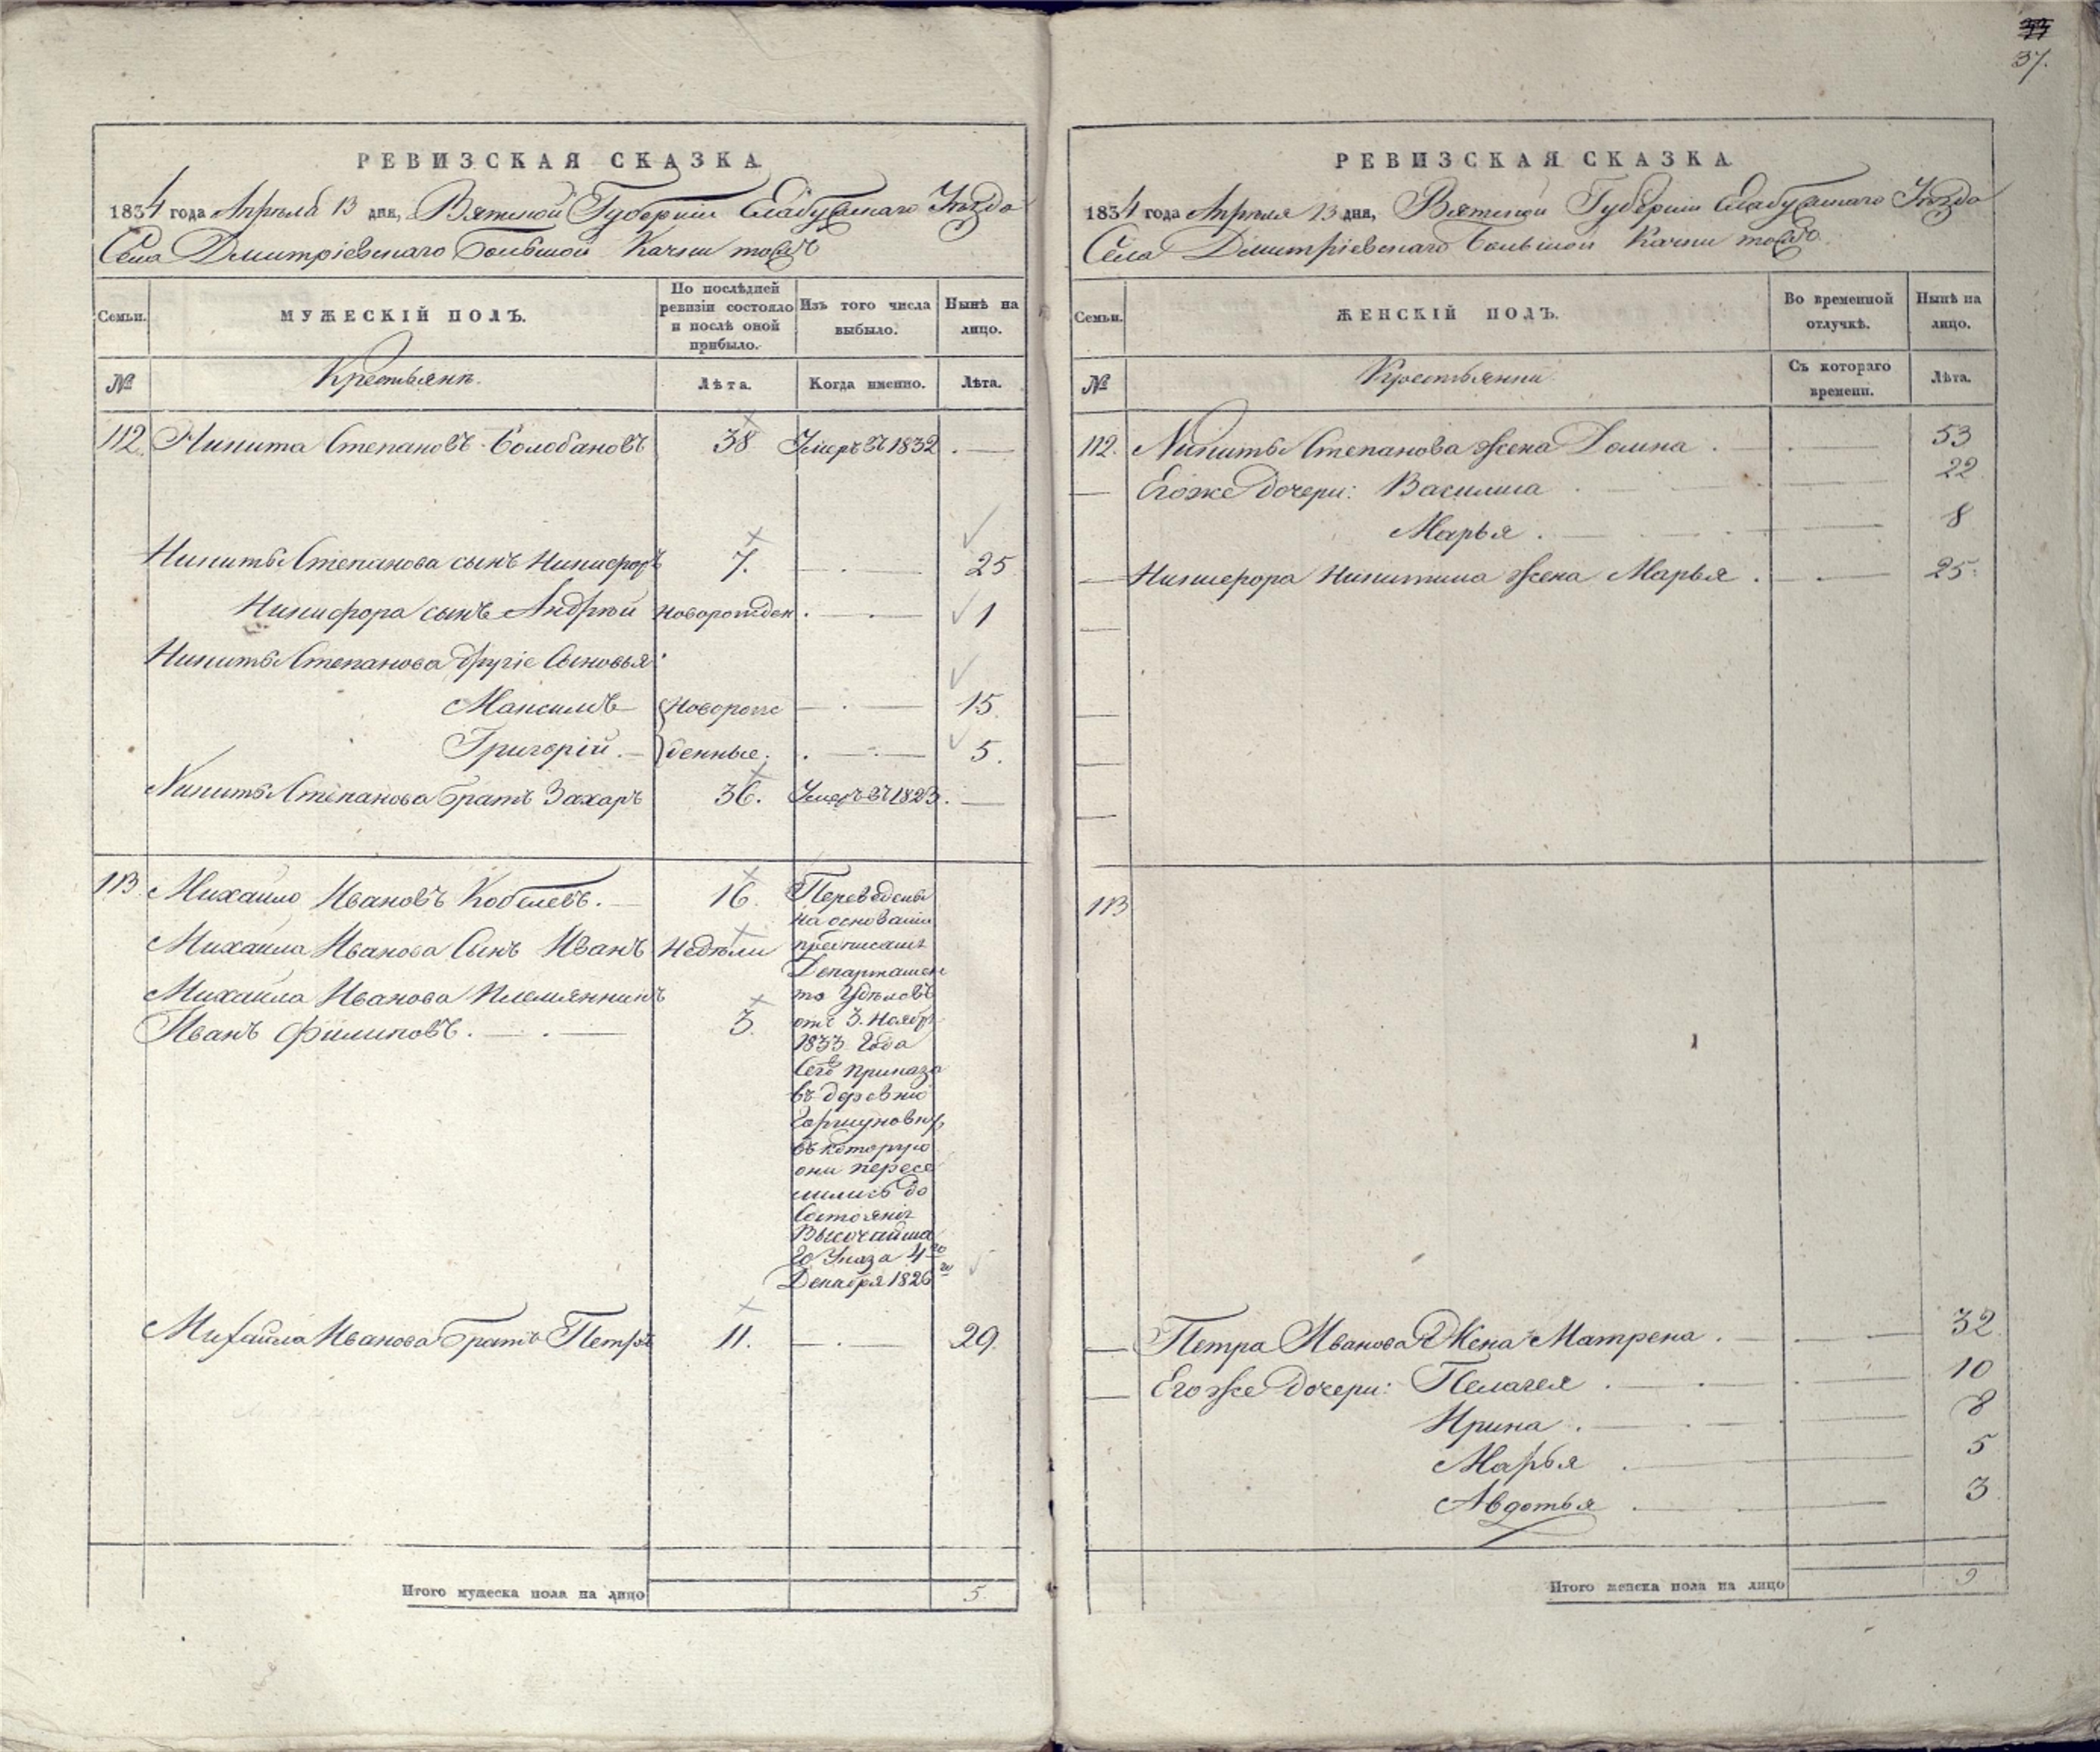 37.
РЕВИЗСКАЯ СКАЗКА
1834 года Апрѣля 13 дня, Вятской Губерніи Елабужскаго Уѣзда
Села Дмитріевскаго Большой Качки тожъ
Семьи.
МУЖЕСКІЙ ПОЛЪ.
По послѣдней ревизіи состояло и послѣ оной прибыло.
Изъ того числа выбыло.
Нынѣ на лицо.
№
Крестьяне.
Лѣта.
Когда именно.
Лѣта.
112. Никита Степановъ Солобановъ 38 Умеръ въ 1832 . —
Никиты Степанова сынъ Никифоръ 7. — . — 25
Никифора сынъ Андрѣй новорожден . — . — 1
Никиты Степанова другіе Сыновья:
Максимъ новорож — . — 15.
Григорій. — денные. . — . — 5.
Никиты Степанова братъ Захаръ 36. Умеръ въ 1823. —
113. Михайло Ивановъ Кобелевъ. — 16. Переведены
на основаніи
Михайла Иванова Сынъ Иванъ недѣли предписанія
Департамен
Михайла Иванова Племянникъ та Удѣловъ
Иванъ Филиповъ. — . — 3. отъ 3. Ноябр
1833 Года
Сего приказа
въ деревню
Горшуновку,
въ которую
они пересе
лились до
Состоянія
Высочайша
го Указа 4го
Декабря 1826го
Михайла Иванова братъ Петръ 11. — . — 29.
Итого мужеска пола на лицо 5.
РЕВИЗСКАЯ СКАЗКА
1834 года Апрѣля 13 дня, Вятской Губерніи Елабужскаго Уѣзда
Села Дмитріевскаго Большой Качки тожъ.
Семьи.
ЖЕНСКІЙ ПОЛЪ.
Во временной отлучкѣ.
Нынѣ на лицо.
№
Крестьянки
Съ котораго времени.
Лѣта.
112. Никиты Степанова жена Домна . — . — 53
Егоже дочери: Василиса . — 22
Марья . — 8
Никифора Никитина жена Марья . — . — 25.
113
Петра Иванова Жена Матрена . — . — 32
Его же дочери: Пелагея . — . — 10
Ирина . — . — 8
Марья . — 5
Авдотья . — 3
Итого женска пола на лицо 9